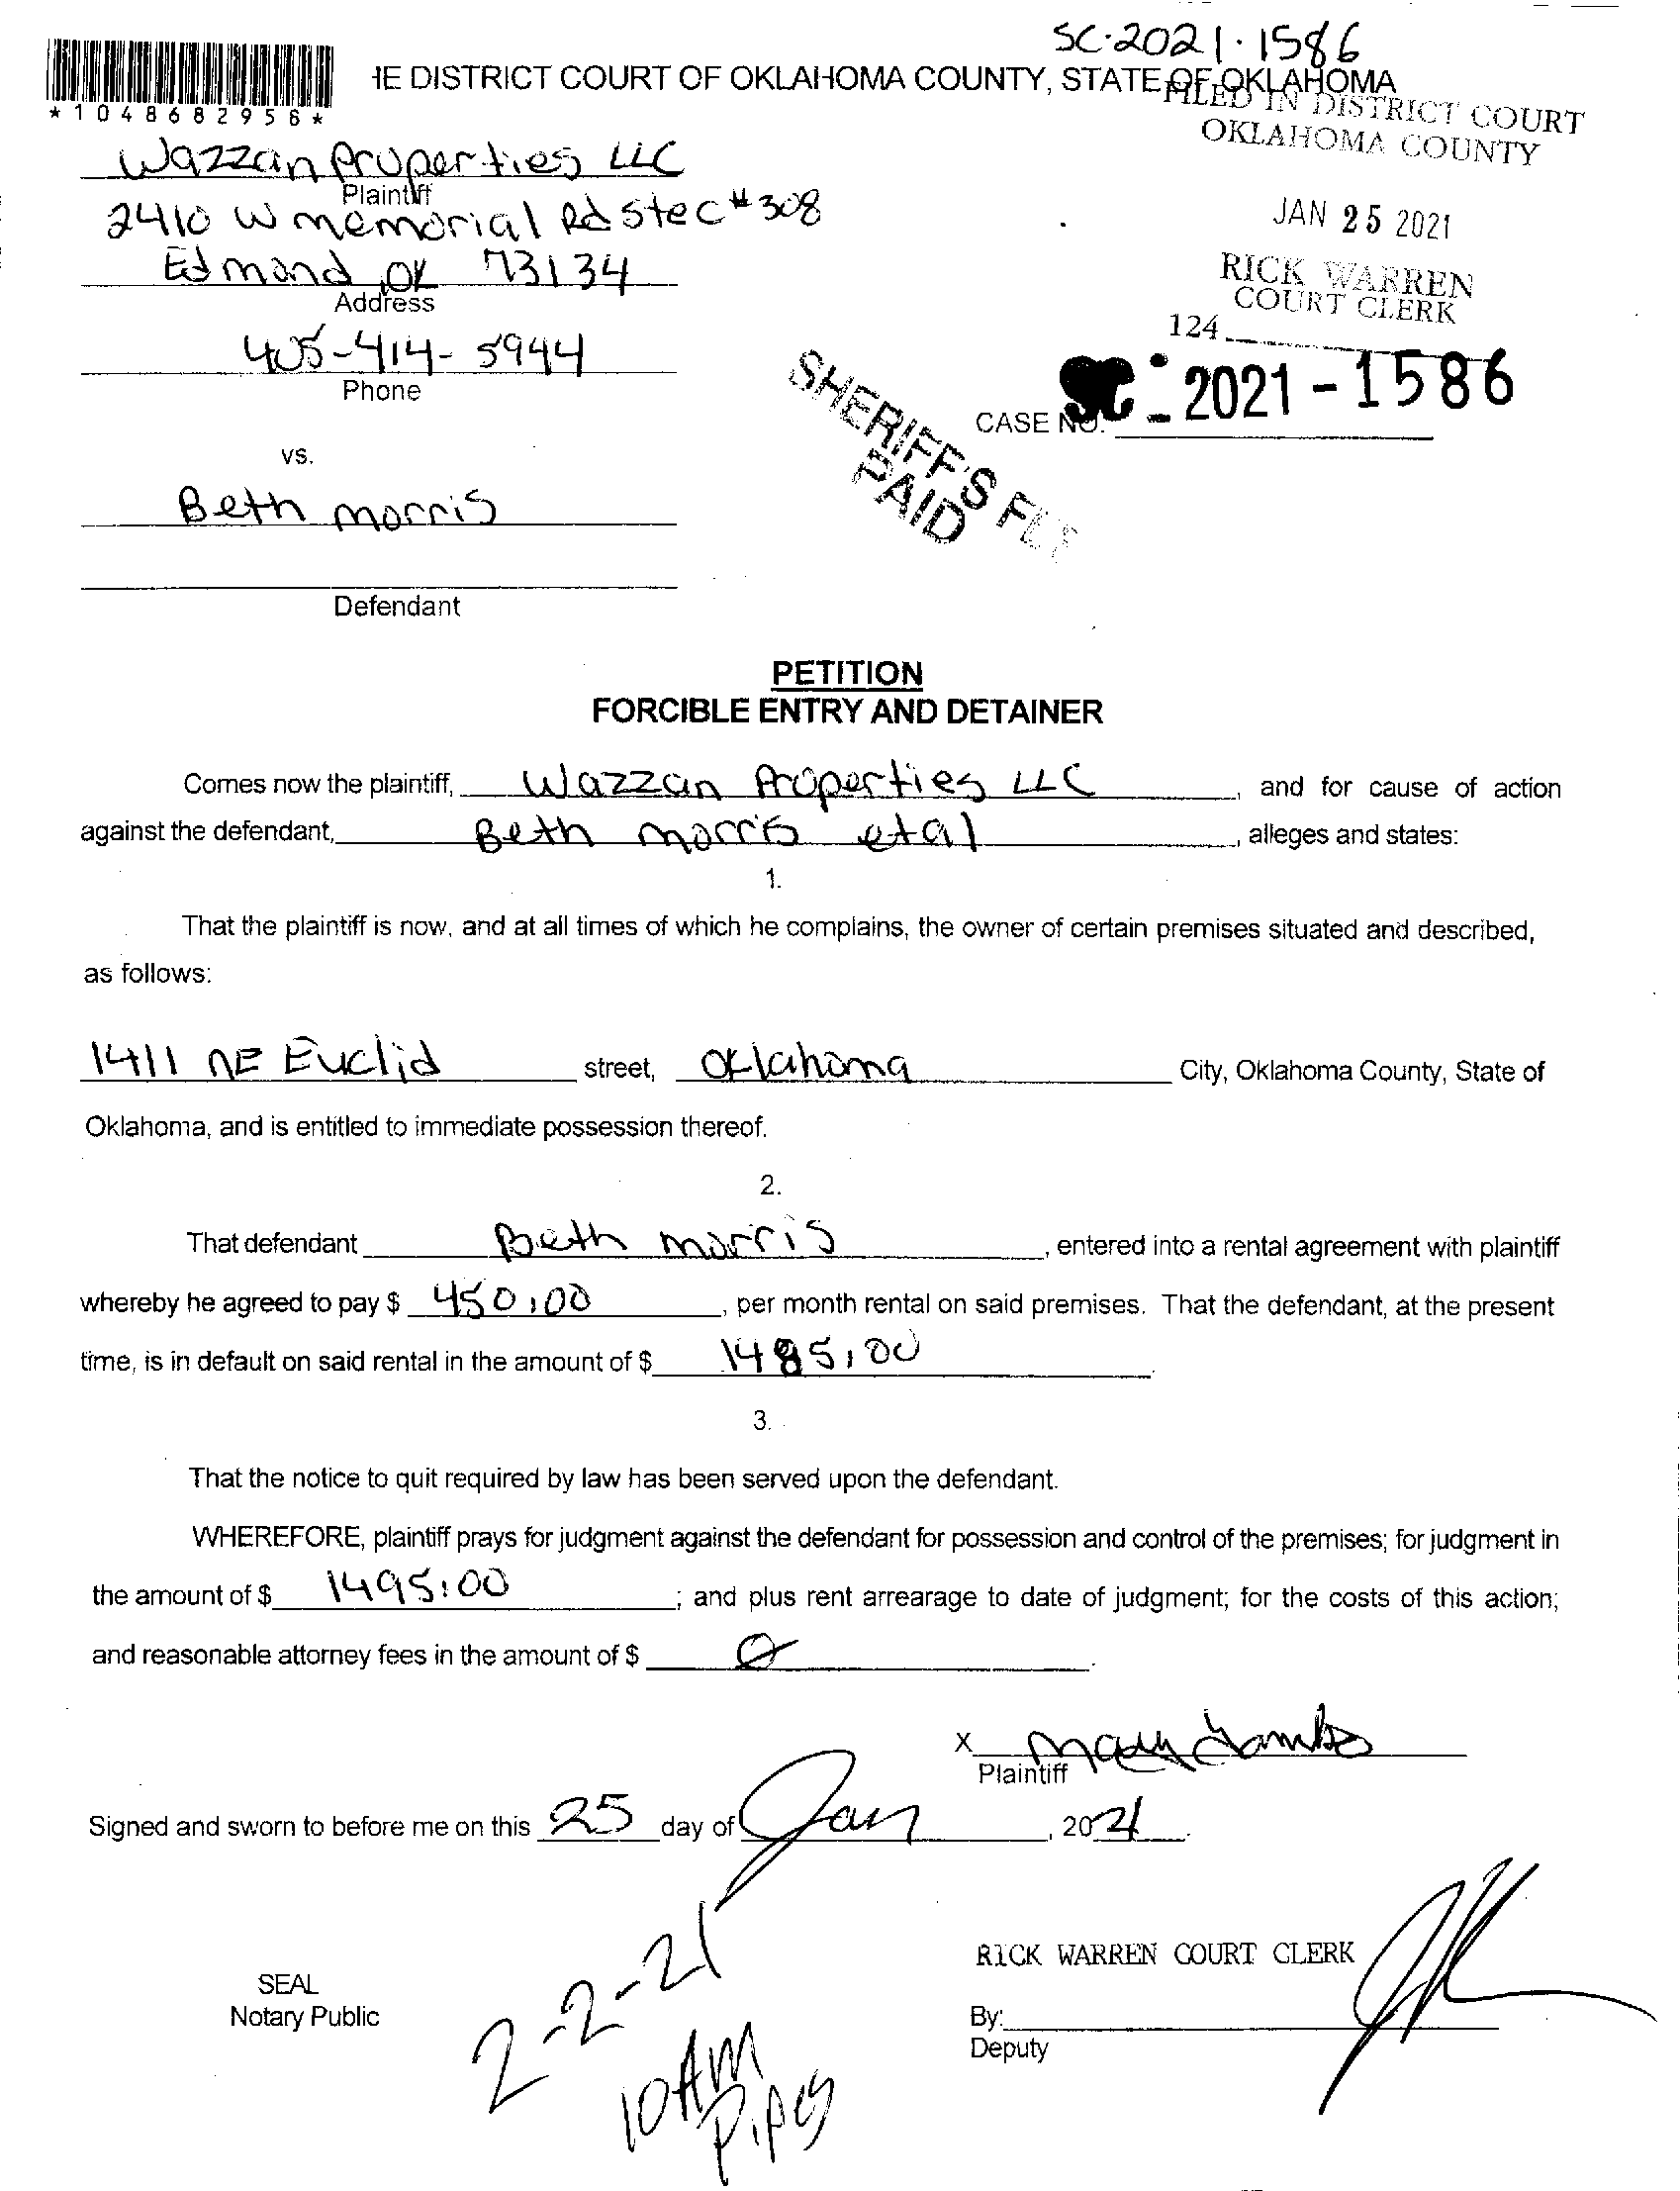 SC-2021-1586
*1048682958*
IE DISTRICT COURT OF OKLAHOMA COUNTY, STATE OF OKLAHOMA
FILED IN DISTRICT COURT
OKLAHOMA COUNTY
Wazzan Properties LLC
Plaintiff
2410 W memorial Rd Ste C #308
JAN 25 2021
Edmond, OK 73134
Address
RICK WARREN
COURT CLERK
124
405-414-5944
Phone
SHERIFF'S FEE
PAID
CASE NO. SC-2021-1586
vs.
Beth morris
Defendant
PETITION
FORCIBLE ENTRY AND DETAINER
Comes now the plaintiff, Wazzan Properties LLC, and for cause of action
against the defendant, Beth morris etal, alleges and states:
1.
That the plaintiff is now, and at all times of which he complains, the owner of certain premises situated and described,
as follows:
1411 NE Euclid street, Oklahoma City, Oklahoma County, State of
Oklahoma, and is entitled to immediate possession thereof.
2.
That defendant Beth morris, entered into a rental agreement with plaintiff
whereby he agreed to pay $ 450.00, per month rental on said premises. That the defendant, at the present
time, is in default on said rental in the amount of $ 1485.00.
3.
That the notice to quit required by law has been served upon the defendant.
WHEREFORE, plaintiff prays for judgment against the defendant for possession and control of the premises; for judgment in
the amount of $ 1495.00; and plus rent arrearage to date of judgment; for the costs of this action;
and reasonable attorney fees in the amount of $ 0.
X
Plaintiff
Signed and sworn to before me on this 25 day of Jan, 2021.
RICK WARREN COURT CLERK
SEAL
Notary Public
By:
Deputy
2-2-21
10 AM
Pipes